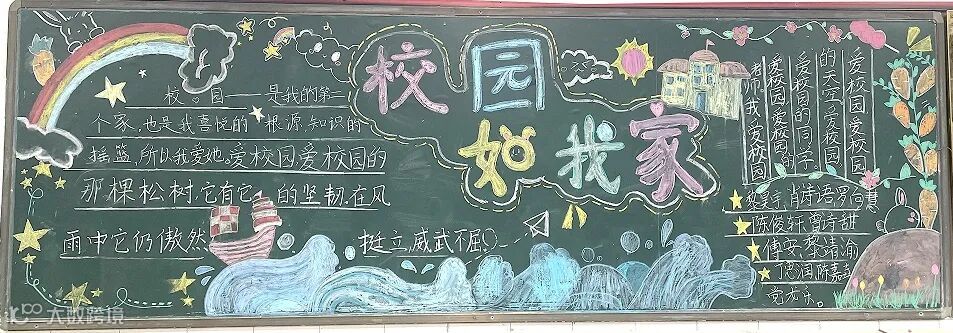 校园如我家
校园——是我的第二
个家,也是我喜悦的根源,知识的
摇篮,所以我爱她。爱校园爱校园的
那棵松树,它有它的坚韧,在风
雨中它仍傲然挺立威武不屈!
爱校园爱校园
的天空爱校园
爱校园的同学
爱校园爱校园的
老师我爱校园
肖诗语 罗
陈俊轩 曾诗甜
傅安 黎清渝
丁思润 陈嘉
大数跨境